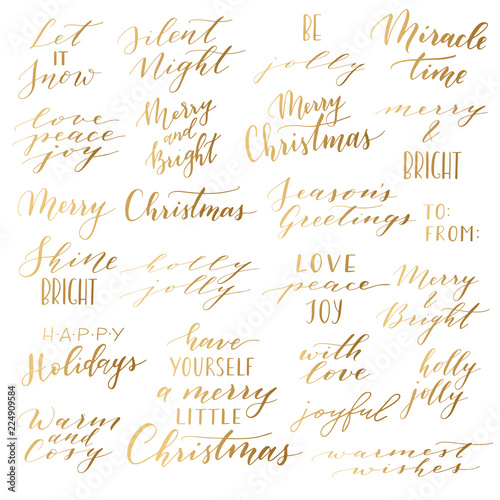 Let
IT
Snow
Silent
Night
BE
jolly
Miracle
time
love
peace
joy
Merry
and
Bright
Merry
Christmas
merry
&
BRIGHT
Merry Christmas
Season's
Greetings
TO:
FROM:
Shine
BRIGHT
holly
jolly
LOVE
peace
JOY
Merry
&
Bright
HAPPY
Holidays
have
YOURSELF
a merry
LITTLE
Christmas
with
love
holly
jolly
Warm
and
Cosy
joyful
warmest
wishes
Adobe Stock | #224909584